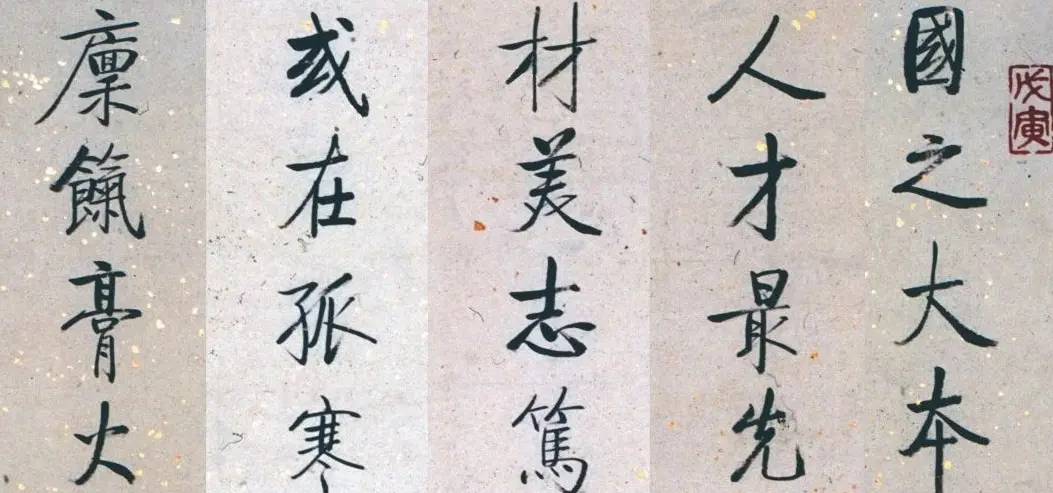 戊寅
國之大本
人才最先
材美志篤
或在孤寒
廩餼膏火